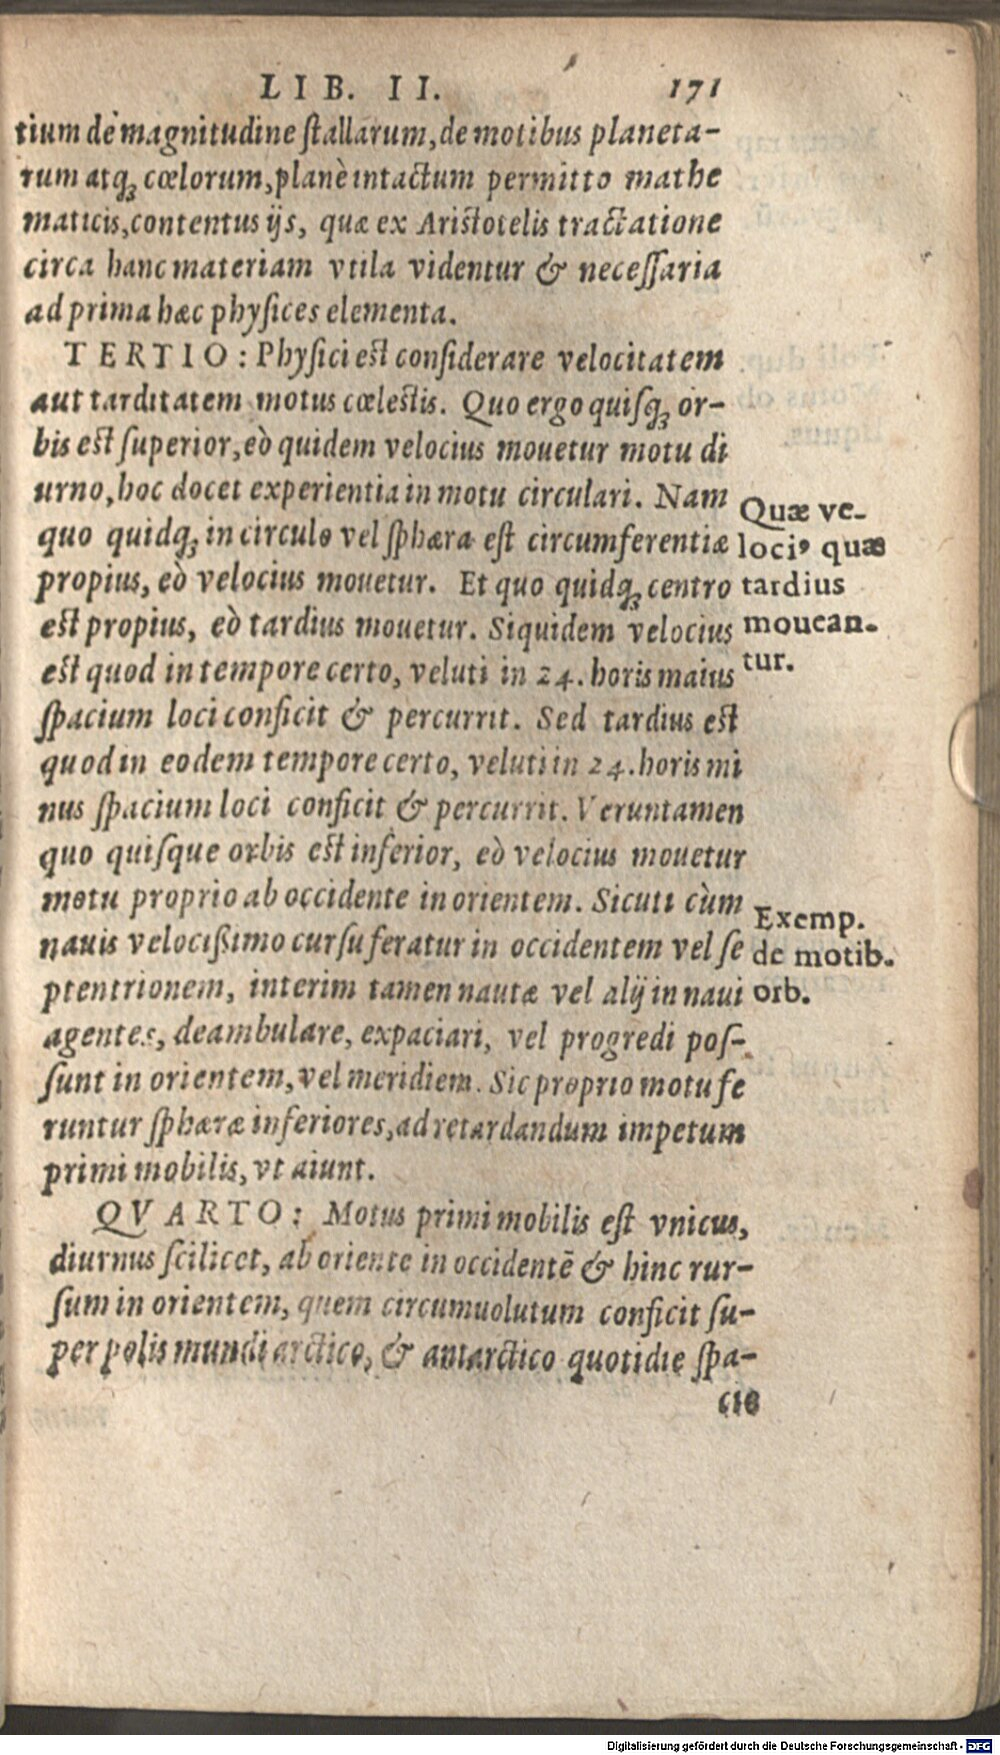 LIB. II. 171
tium de magnitudine stallarum, de motibus planeta-
rum atq; cœlorum, planè intactum permitto mathe
maticis, contentus ijs, quæ ex Aristotelis tractatione
circa hanc materiam vtila videntur & necessaria
ad prima hæc physices elementa.
TERTIO: Physici est considerare velocitatem
aut tarditatem motus cœlestis. Quo ergo quisq; or-
bis est superior, eò quidem velocius mouetur motu di
urno, hoc docet experientia in motu circulari. Nam
quo quidq; in circulo vel sphæra est circumferentiæ
propius, eò velocius mouetur. Et quo quidq; centro
est propius, eò tardius mouetur. Siquidem velocius
est quod in tempore certo, veluti in 24. horis maius
spacium loci conficit & percurrit. Sed tardius est
quod in eodem tempore certo, veluti in 24. horis mi
nus spacium loci conficit & percurrit. Veruntamen
quo quisque orbis est inferior, eò velocius mouetur
motu proprio ab occidente in orientem. Sicuti cùm
nauis velocißimo cursu feratur in occidentem vel se
ptentrionem, interim tamen nautæ vel alij in naui
agentes, deambulare, expaciari, vel progredi pos-
sunt in orientem, vel meridiem. Sic proprio motu fe
runtur sphæræ inferiores, ad retardandum impetum
primi mobilis, vt aiunt.
QVARTO: Motus primi mobilis est vnicus,
diurnus scilicet, ab oriente in occidentē & hinc rur-
sum in orientem, quem circumuolutum conficit su-
per polis mundi arctico, & antarctico quotidie spa-
cio
Quæ ve-
lociꝰ quæ
tardius
mouean-
tur.
Exemp.
de motib.
orb.
Digitalisierung gefördert durch die Deutsche Forschungsgemeinschaft - DFG